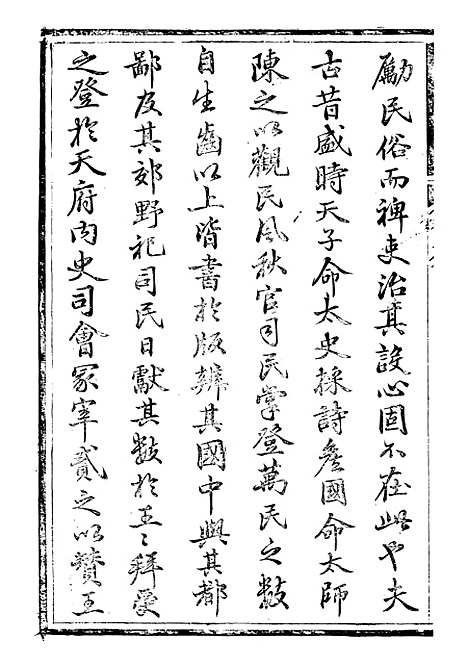 勵民俗而裨吏治其設心固不在此也夫
古昔盛時天子命太史採詩詹國命太師
陳之以觀民風秋官司民掌登萬民之數
自生齒以上皆書於版辨其國中與其都
鄙及其郊野祀司民日獻其數於王〻拜受
之登於天府內史司會冢宰貳之以贊王